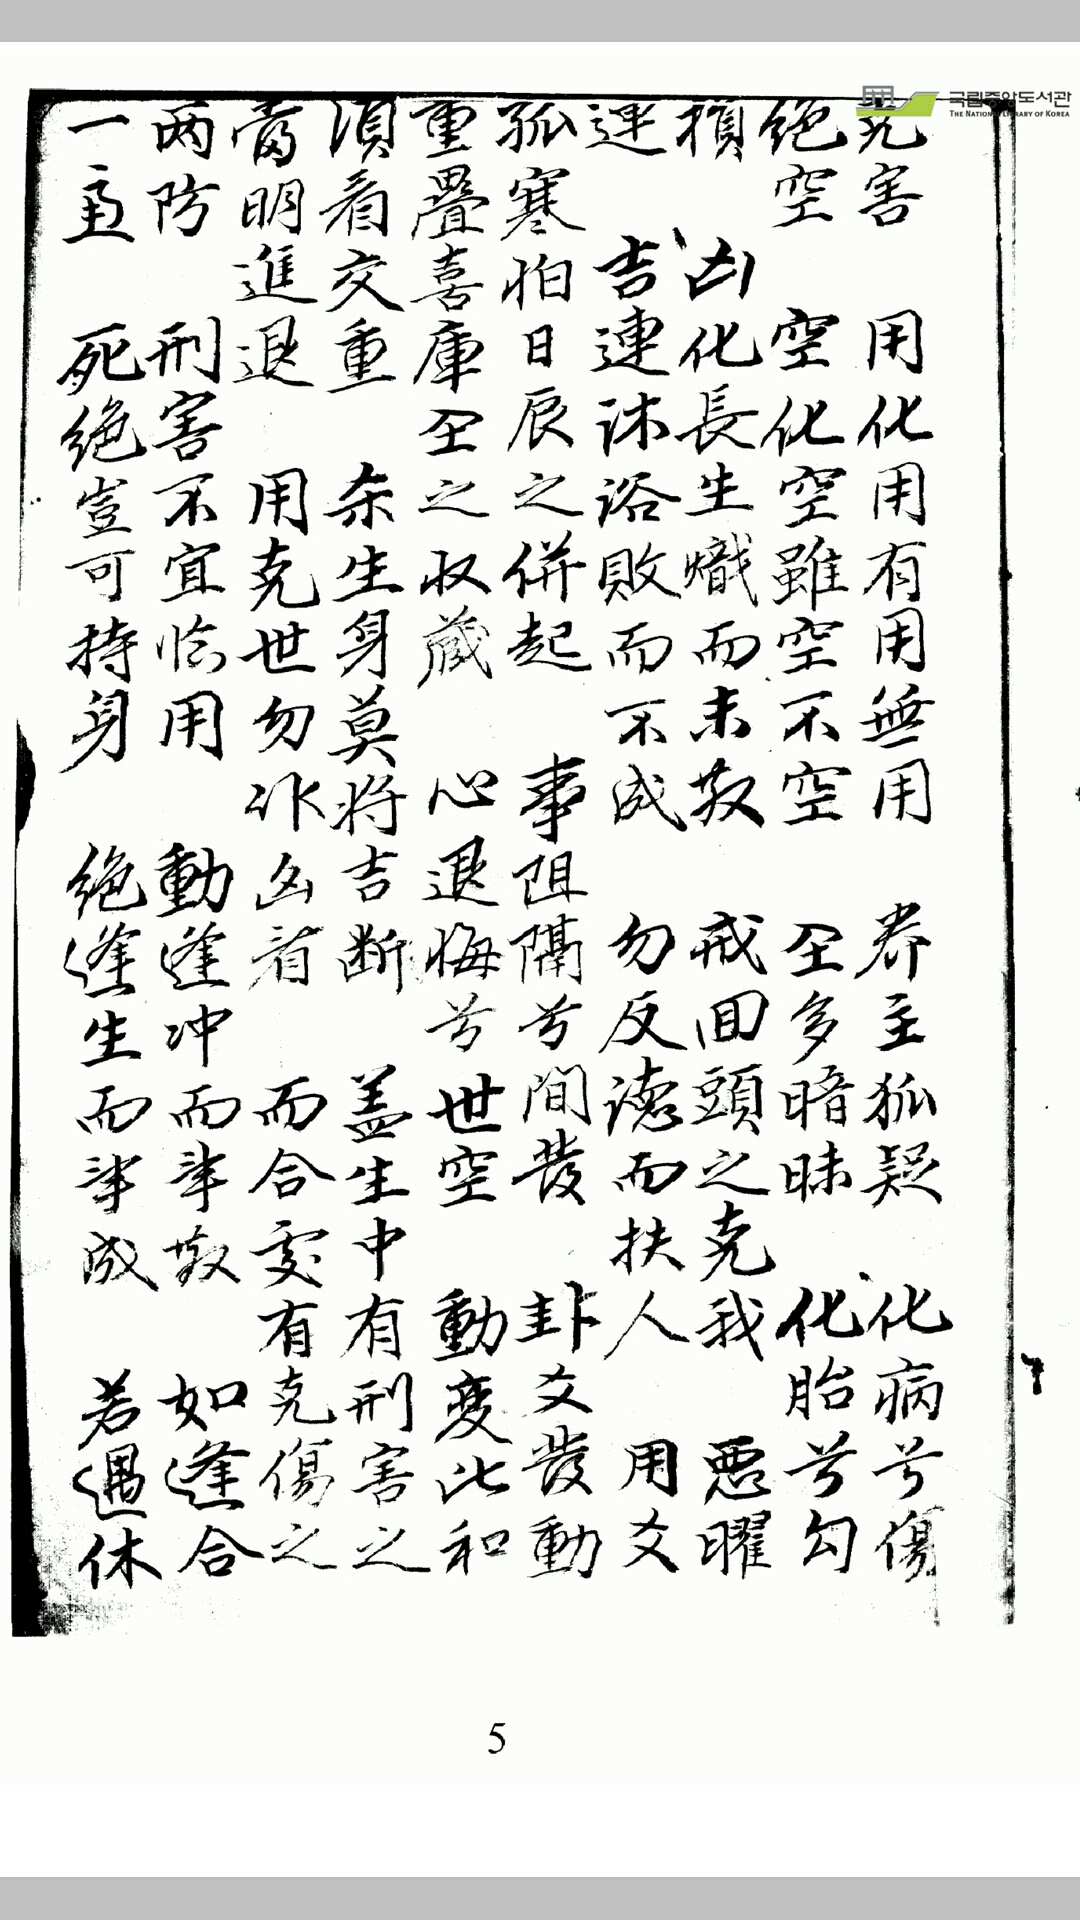 국립중앙도서관
THE NATIONAL LIBRARY OF KOREA
害 用化用有用無用 养主狐疑 化病兮傷
絶空 空化空雖空不空 全多暗昧 化胎兮勾
損 凶化長生熾而未散 戒回頭之克我 惡曜
連 吉連沐浴敗而不成 勿反德而扶人 用爻
孤寒怕日辰之併起 事阻隔兮間發 卦爻發動
重疊喜庫全之収藏 心退悔兮世空 動變比和
須看交重 杂生身莫将吉断 盖生中有刑害之
當明進退 用克世勿作凶看 而合處有克傷之
两防 刑害不宜临用 動逢冲而事散 如逢合
一主 死絶豈可持身 絶逢生而事成 若遇休
5